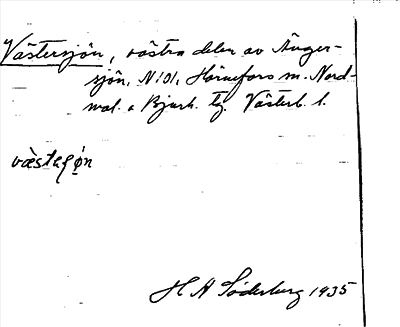 Västersjön, västra delen av Änger-
sjön, N:o1, Hörnefors m. Nord-
mal. o Bjurh. tg. Västerb. l.
västeʃǿn
H A Söderberg 1935